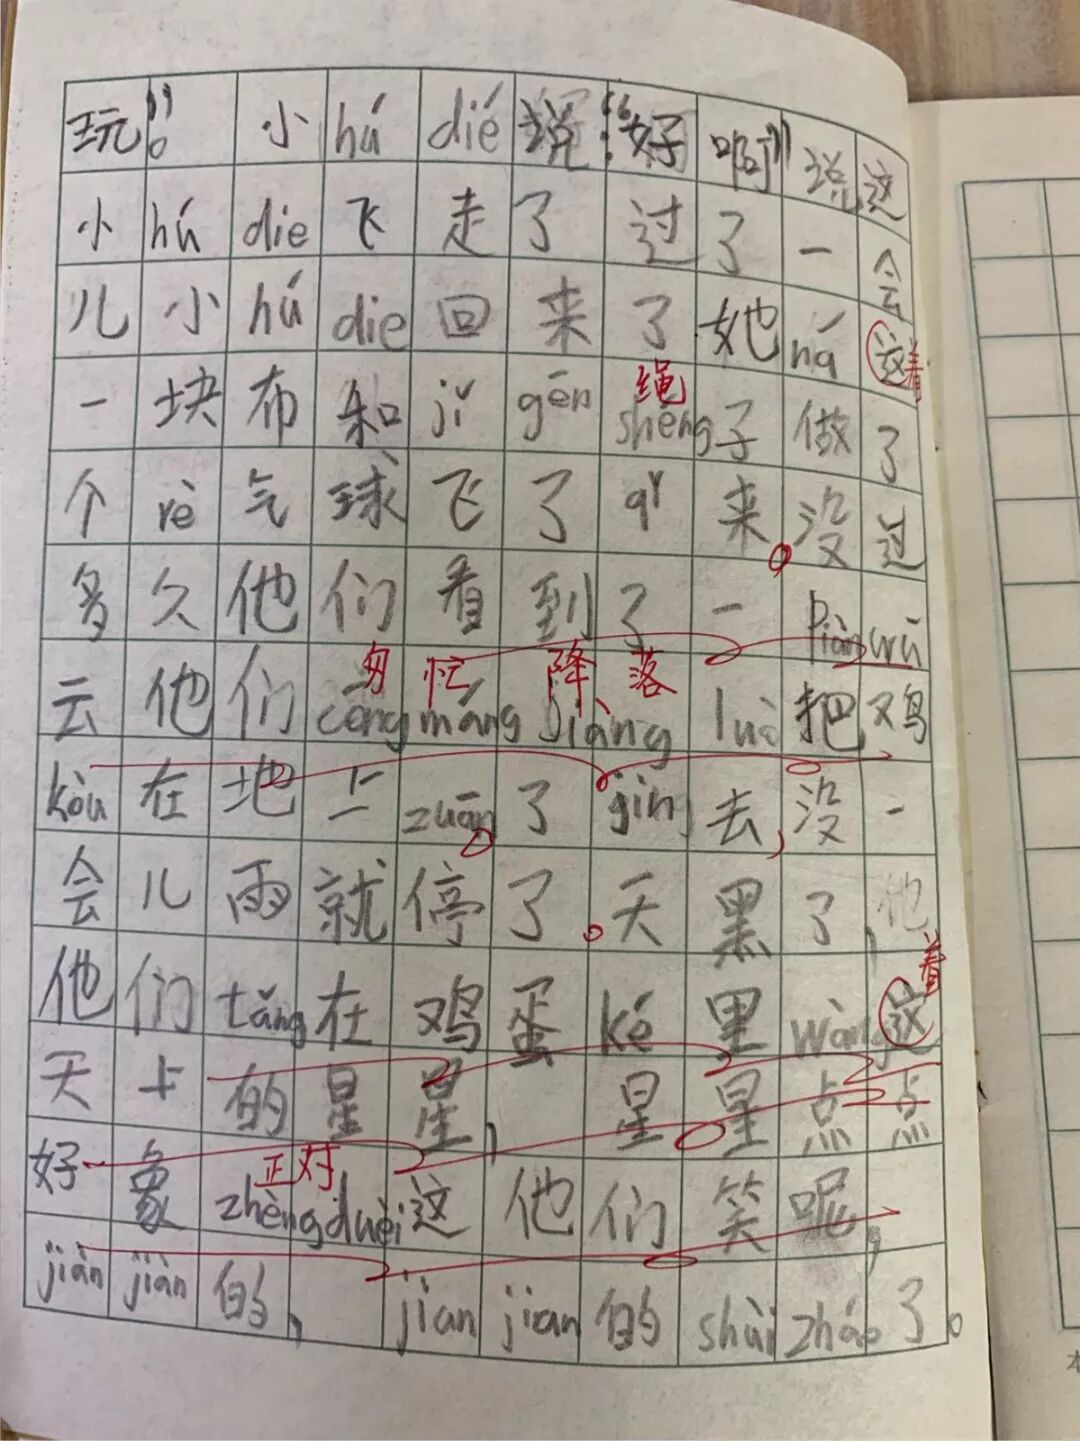 玩”。小hú dié说:“好啊”说这
小hú die飞走了过了一会
儿小hú die回来了她ná这着
一块布和jǐ gēn shéng绳子做了
个rè气球飞了qǐ来。没过
多久他们看到了一piàn wū
云他们cōng máng jiàng luò匆忙降落把鸡
kòu在地上zuān了jìn去,没一
会儿雨就停了。天黑了,他
他们tǎng在鸡蛋ké里wàng这着
天上的星星,星星点点
好象zhèng duèi正对这他们笑呢,
jiàn jiàn的,jian jian的shùi zháo了。